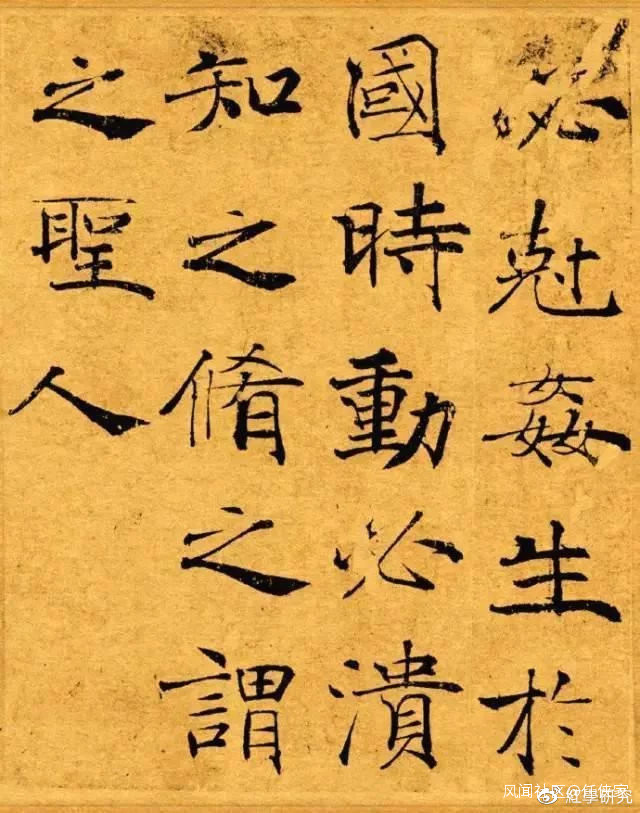 必尅姦生於
國時動必潰
知之脩之謂
之聖人
风闻社区@任倩室
@红学研究